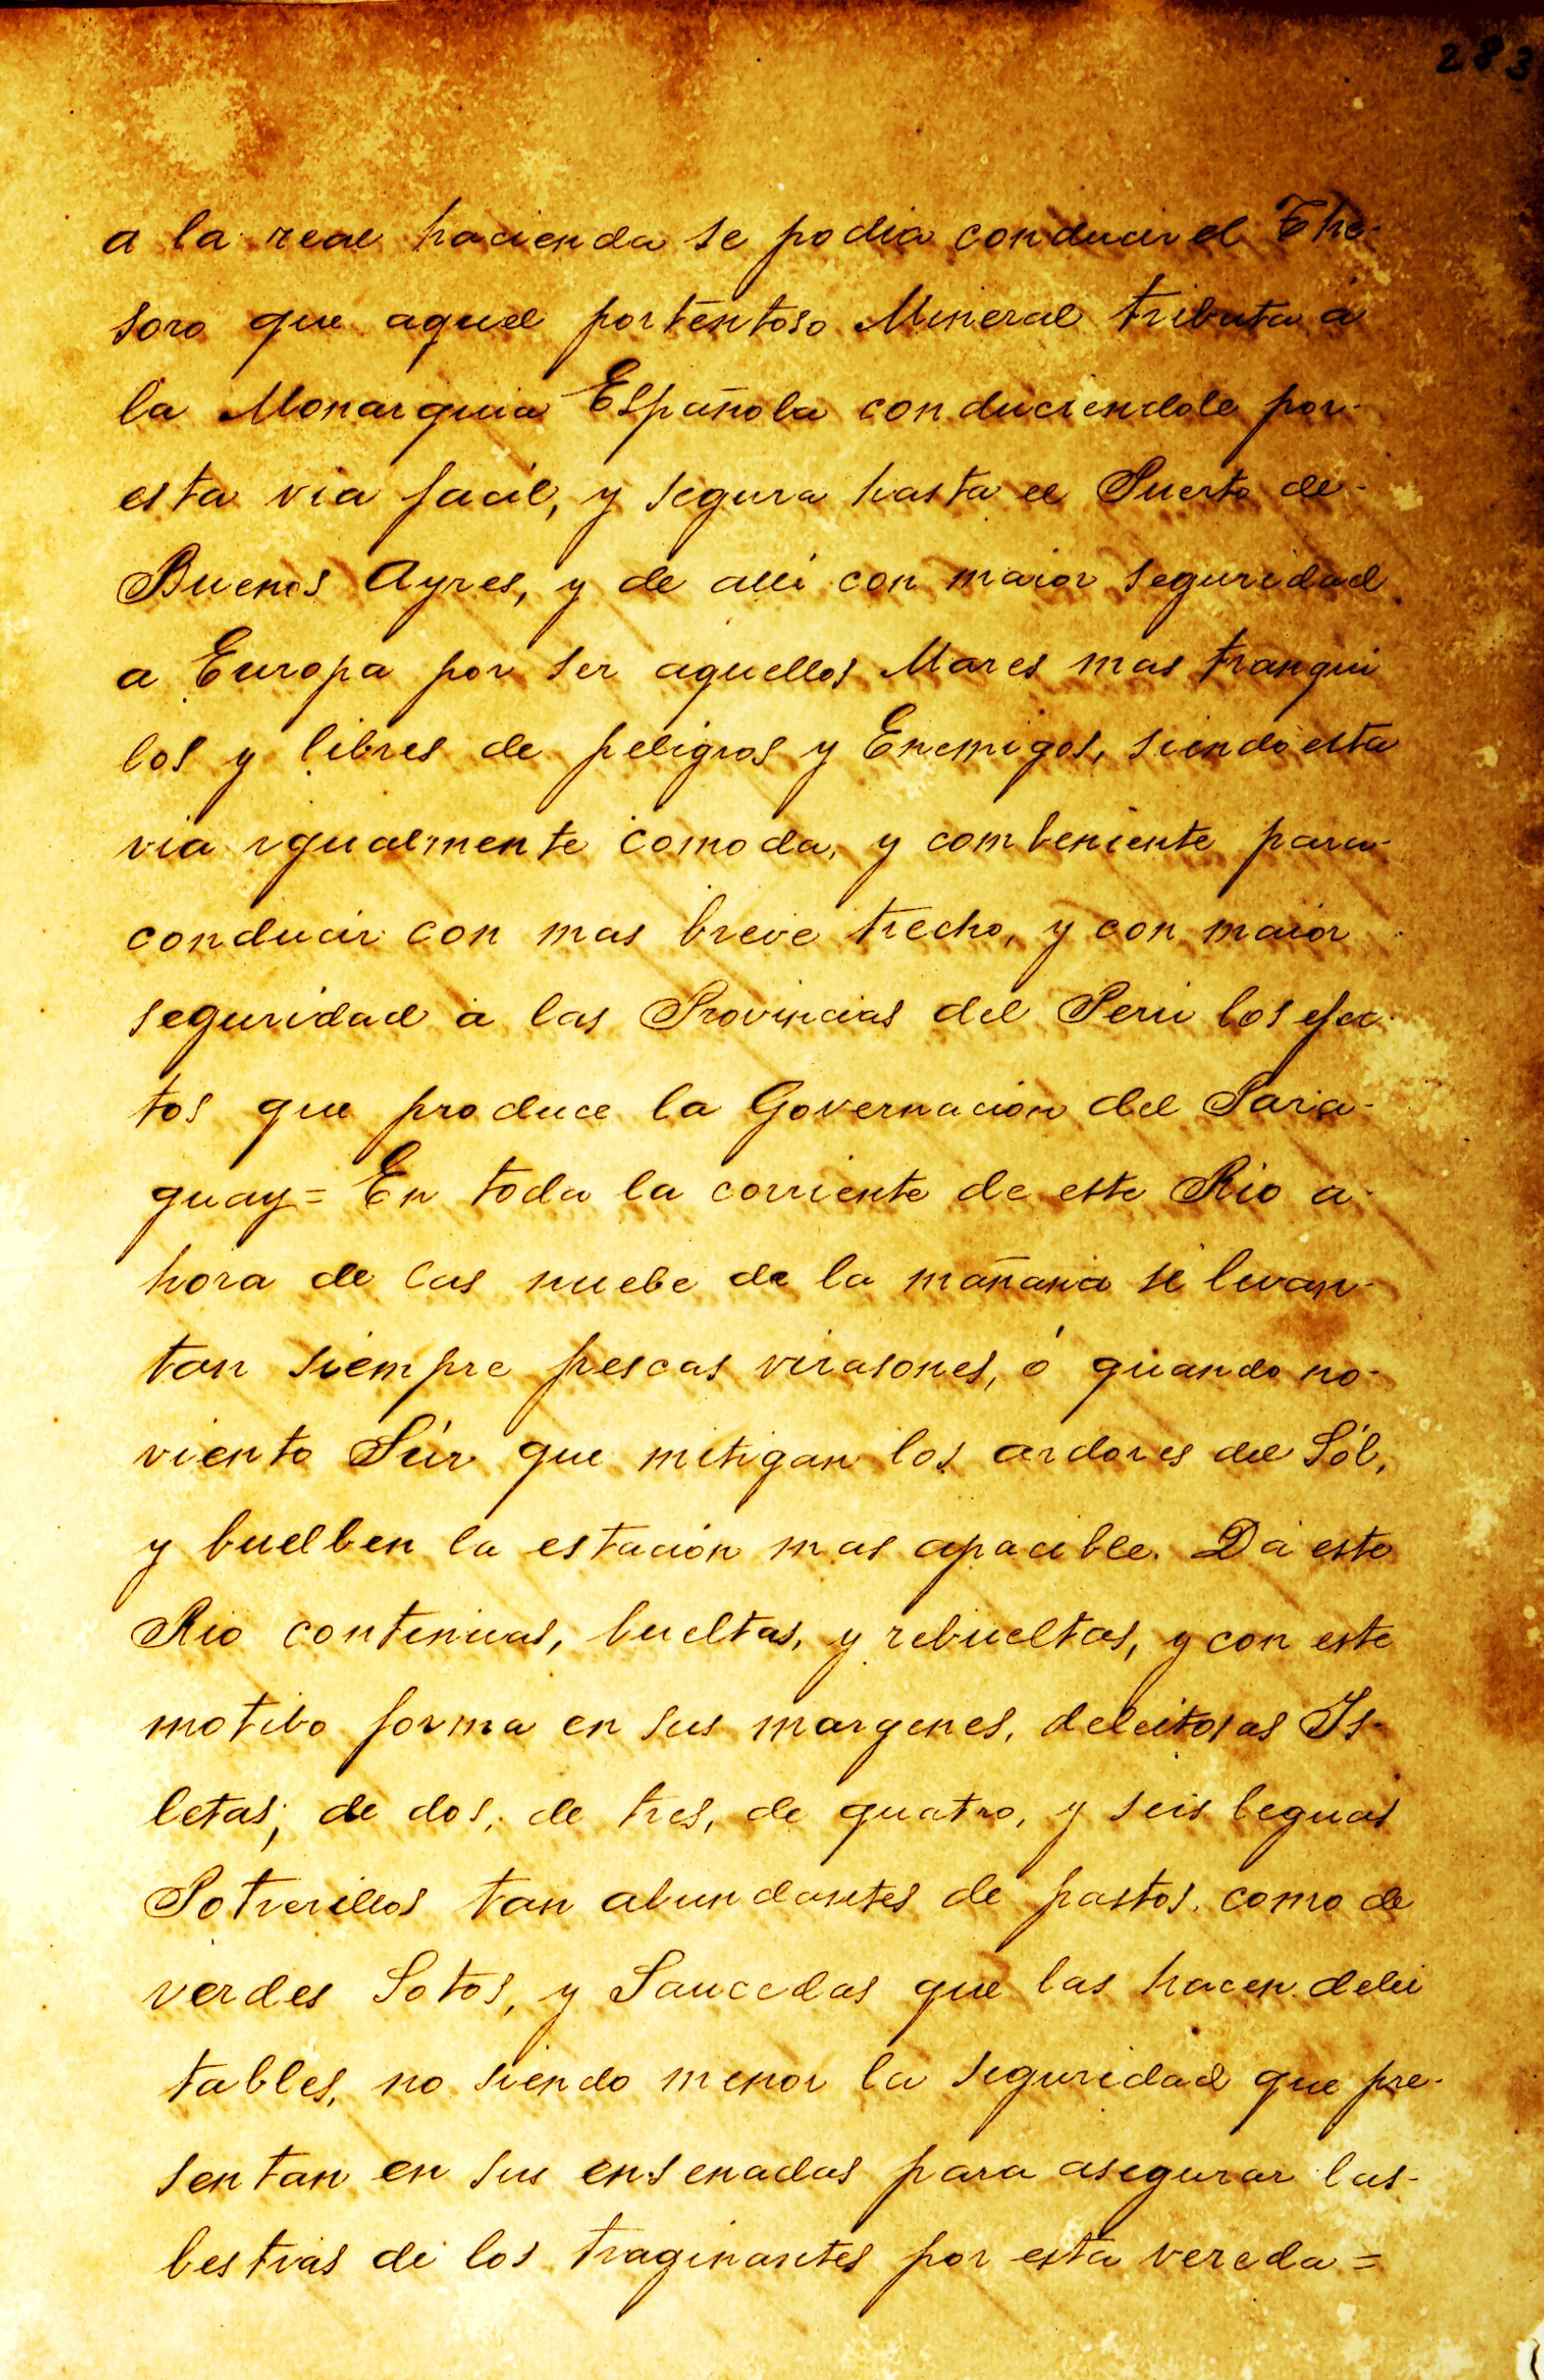 283
a la real hacienda se podia conducir el The-
soro que aquel portentoso Mineral tributa á
la Monarquia Española conduciendole por-
esta via facil, y segura hasta el Puerto de-
Buenos Ayres, y de alli con maior seguridad
a Europa por ser aquellos Mares mas tranqui
los y libres de peligros y Enemigos, siendo esta
via igualmente comoda, y combeniente para-
conducir con mas breve trecho, y con maior
seguridad a las Provincias del Perú los efec-
tos que produce la Governacion del Para-
guay= En toda la corriente de este Rio a-
hora de las nuebe de la mañana se levan-
tan siempre frescas virasones, ó quando no-
viento Súr que mitigan los ardores del Sól,
y buelben la estación mas apacible. Dá este
Rio continuas, bueltas, y rebueltas, y con este
motibo forma en sus margenes, deleitosas Is-
letas; de dos, de tres, de quatro, y seis leguas
Potrerillos tan abundantes de pastos, como de
verdes Sotos, y Saucedas que las hacen delei
tables, no siendo menor la seguridad que pre-
sentan en sus ensenadas para asegurar las-
bestias de los traginantes por esta vereda=